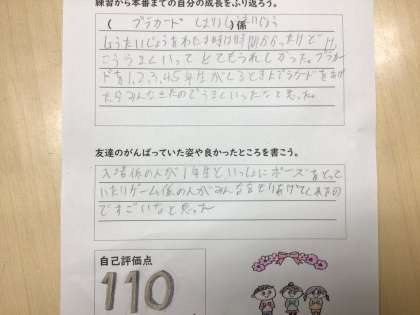 練習から本番までの自分の成長をふり返ろう。
( プラカード しょうたいじょう )係
しょうたいじょうをわたす時は時間かかったけど
こううまくいって とてもうれしかった。プラカー
ドを1,2,3,4,5年生が くるときにプラカードをあげ
たらみんなきたのでうまくいったなと思った。
友達のがんばっていた姿や良かったところを書こう。
入場係の人が1年生といっしょにポーズをとって
いたりゲーム係の人がみんなをもりあげてくれたの
ですごいなと思った
自己評価点
110